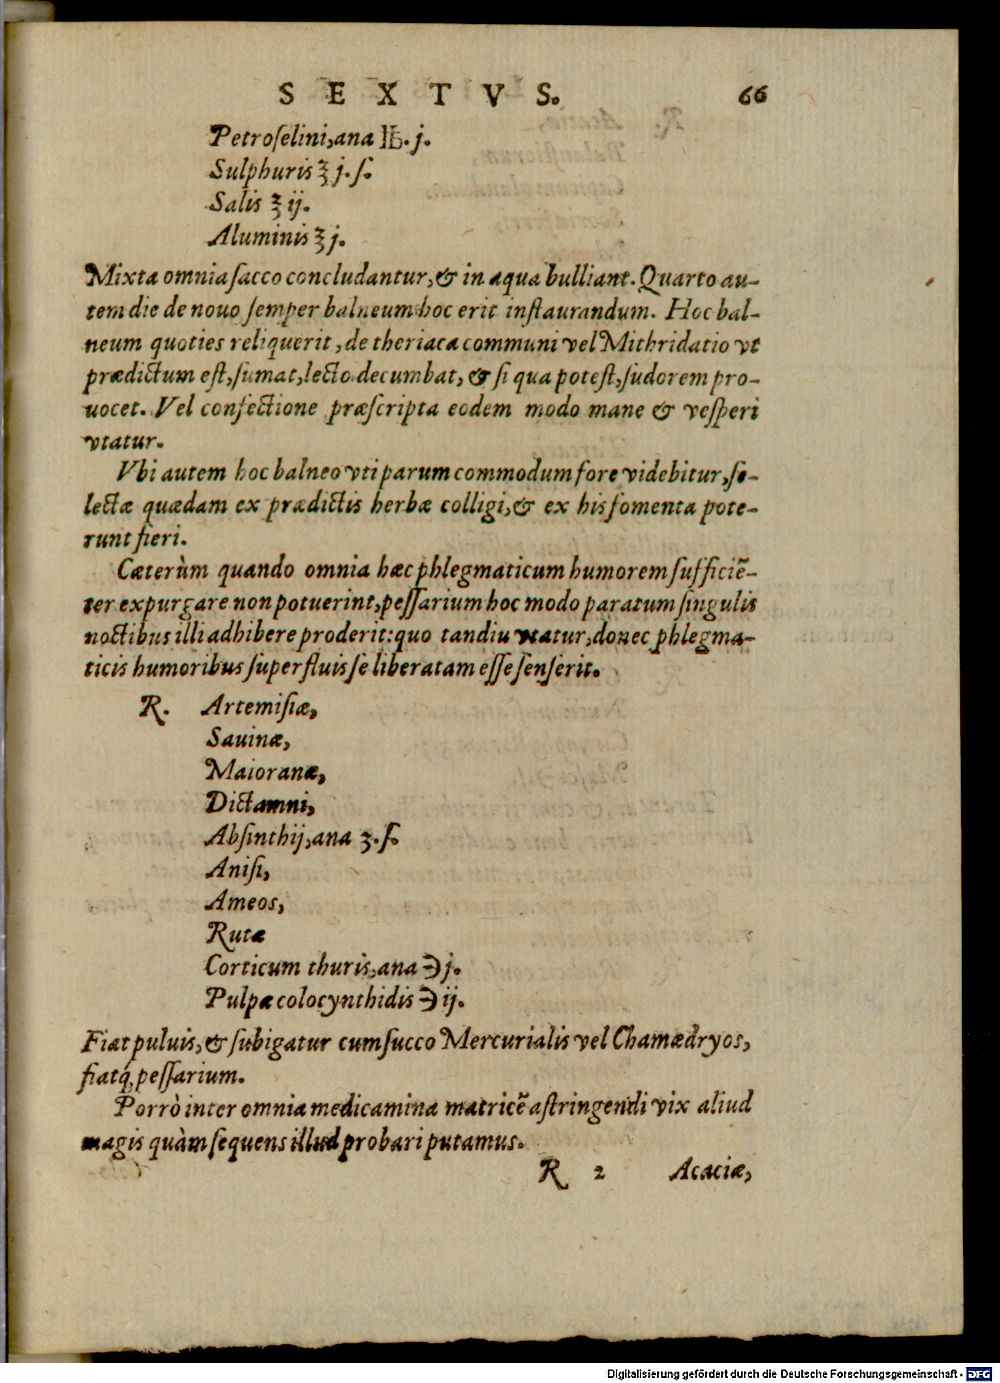 SEXTVS. 66
Petroſelini, ana ℔. j.
Sulphuris ʒ j. ſ.
Salis ʒ ij.
Aluminis ʒ j.
Mixta omnia ſacco concludantur, & in aqua bulliant. Quarto au-
tem die de nouo ſemper balneum hoc erit inſtaurandum. Hoc bal-
neum quoties reliquerit, de theriaca communi vel Mithridatio vt
prædictum eſt, ſumat, lecto decumbat, & ſi qua poteſt, ſudorem pro-
uocet. Vel confectione præſcripta eodem modo mane & veſperi
vtatur.
Vbi autem hoc balneo vti parum commodum fore videbitur, ſe-
lectæ quædam ex prædictis herbæ colligi, & ex his fomenta pote-
runt fieri.
Cæterùm quando omnia hæc phlegmaticum humorem ſufficiẽ-
ter expurgare non potuerint, peſſarium hoc modo paratum ſingulis
noctibus illi adhibere proderit: quo tandiu vtatur, donec phlegma-
ticis humoribus ſuperfluis ſe liberatam eſſe ſenſerit.
R. Artemiſiæ,
Sauinæ,
Maioranæ,
Dictamni,
Abſinthij, ana ʒ. ſ.
Aniſi,
Ameos,
Rutæ
Corticum thuris, ana ℈ j.
Pulpæ colocynthidis ℈ ij.
Fiat puluis, & ſubigatur cum ſucco Mercurialis vel Chamædryos,
fiatq́, peſſarium.
Porrò inter omnia medicamina matricẽ aſtringendi vix aliud
magis quàm ſequens illud probari putamus.
R 2 Acaciæ,
Digitalisierung gefördert durch die Deutsche Forschungsgemeinschaft - DFG